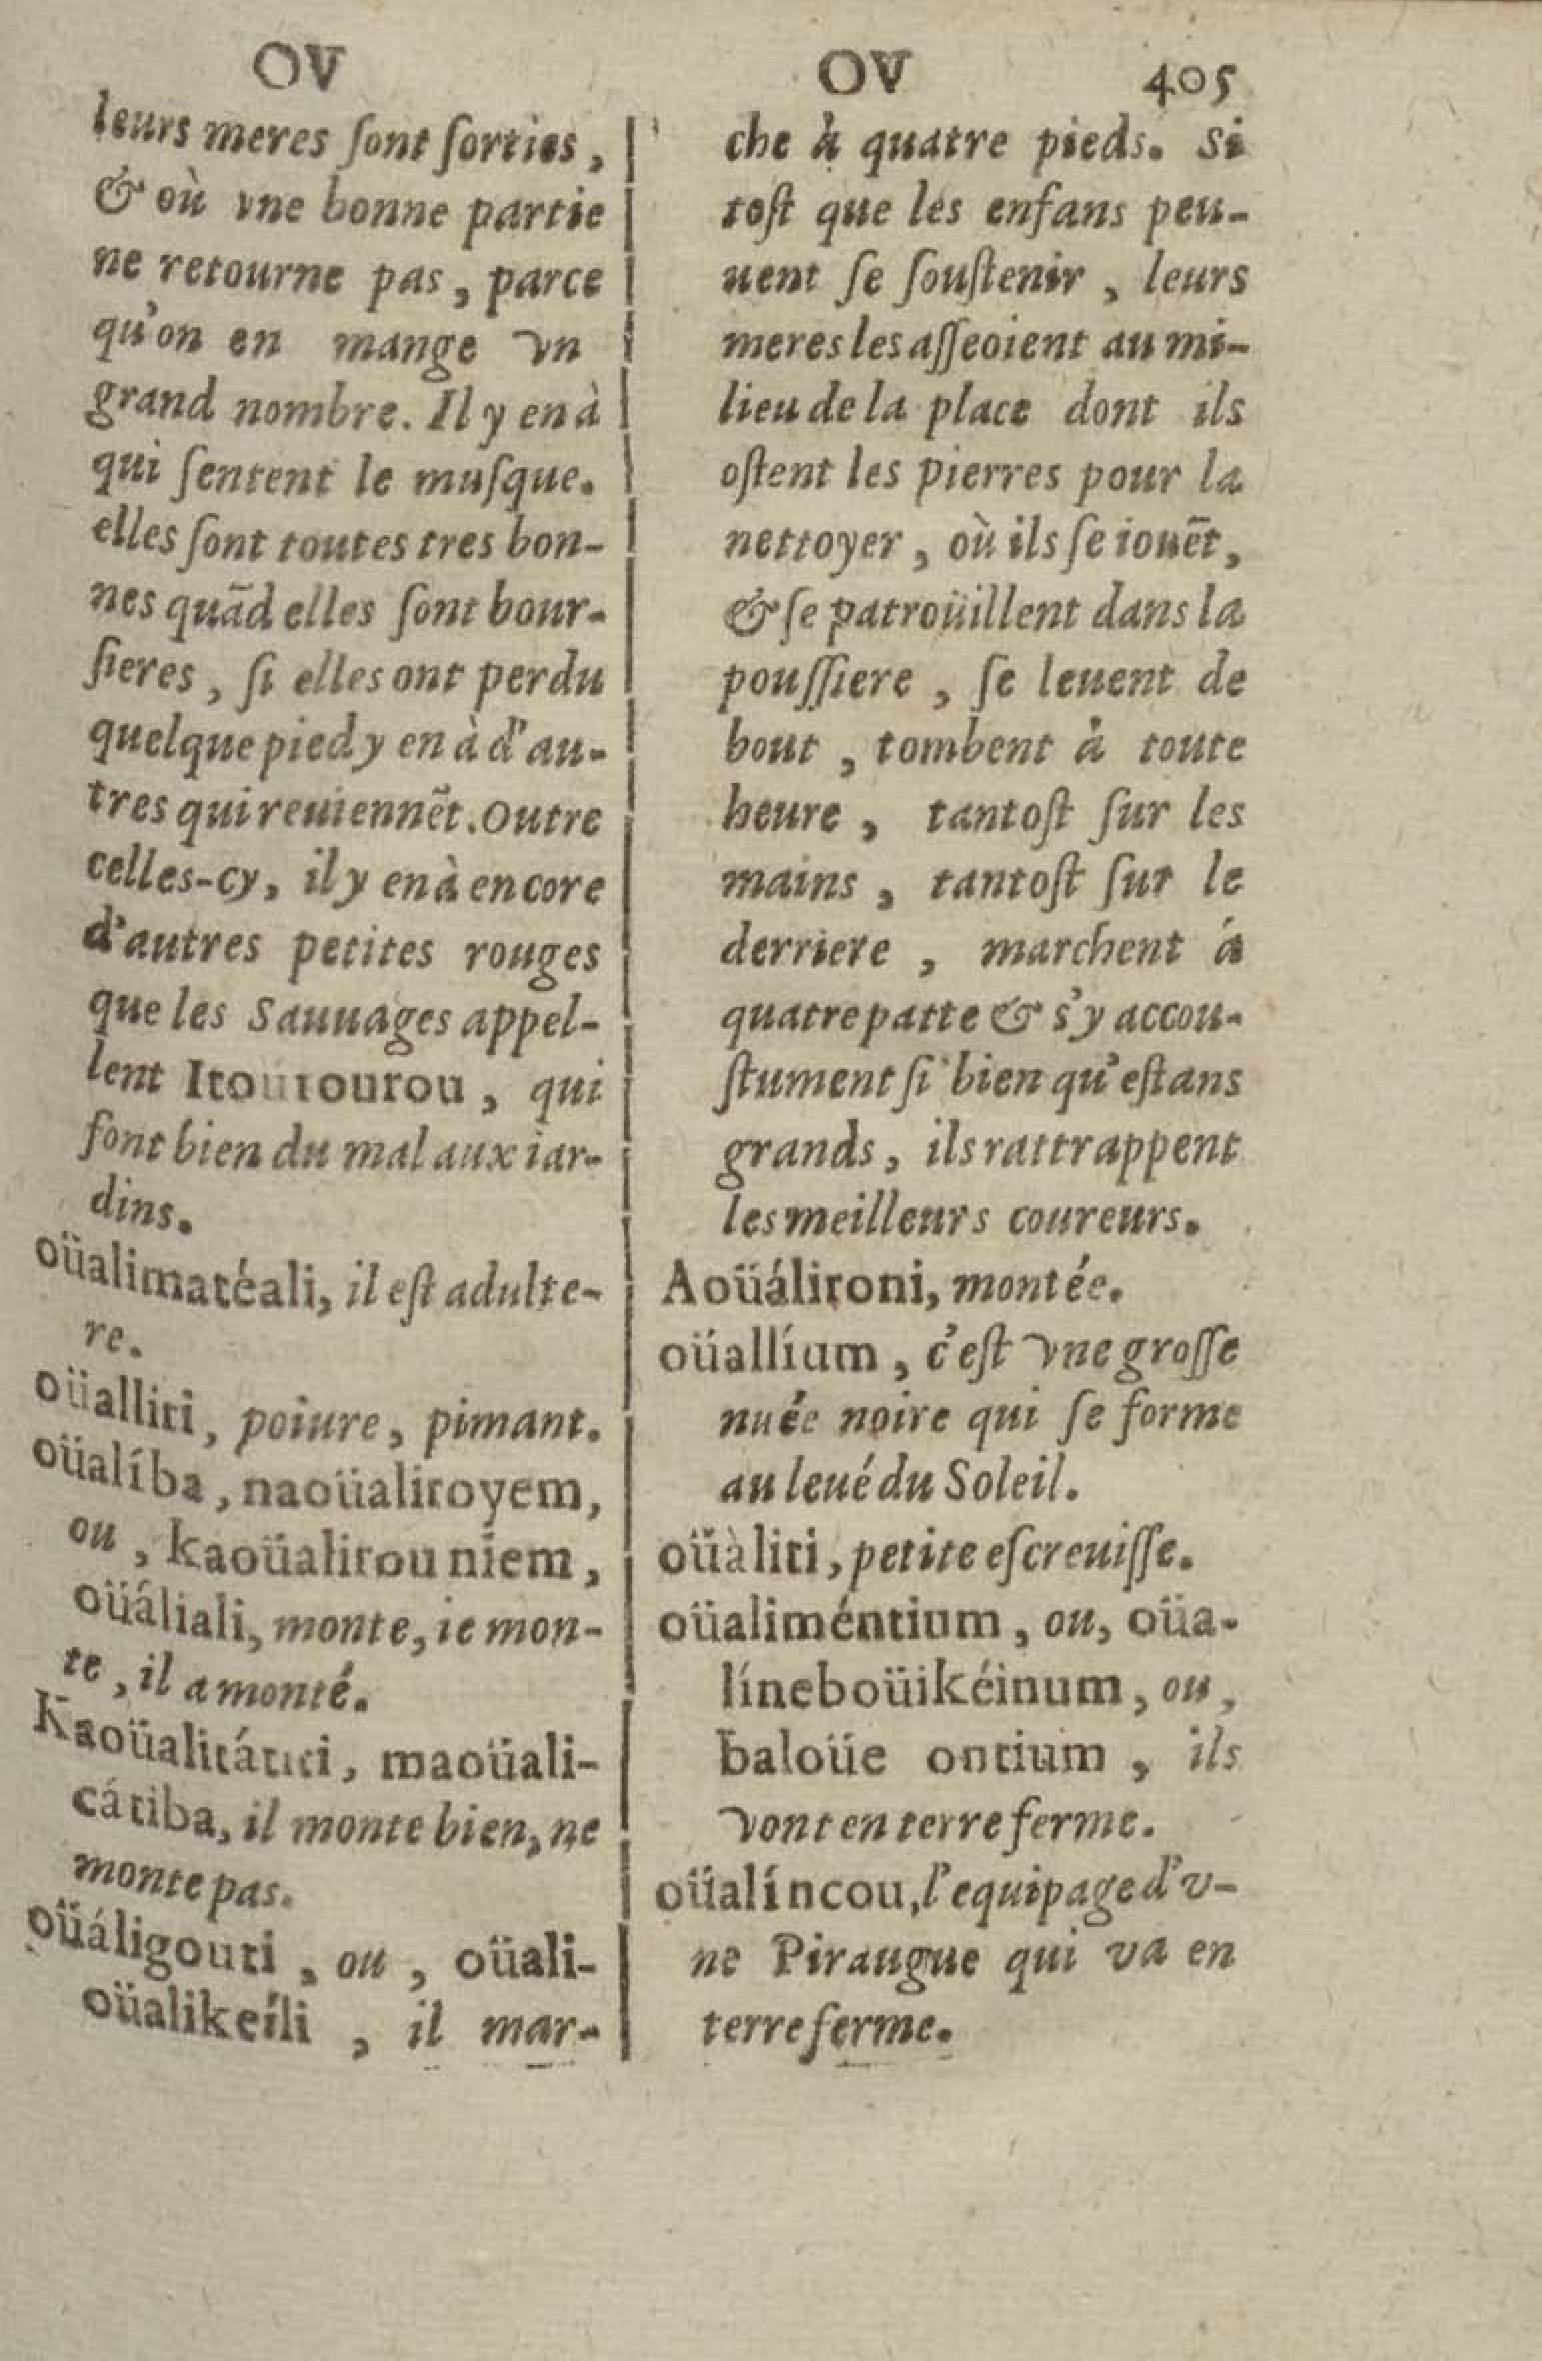 OV
leurs meres ſont ſorties,
& où vne bonne partie
ne retourne pas, parce
qu'on en mange vn
grand nombre. Il y en à
qui ſentent le muſque.
elles ſont toutes tres bon-
nes quãd elles ſont bour-
ſieres, ſi elles ont perdu
quelque pied y en à d'au-
tres qui reuiennẽt. Outre
celles-cy, il y en à encore
d'autres petites rouges
que les Sauuages appel-
lent Itoutourou, qui
font bien du mal aux iar-
dins.
oüalimatéali, il eſt adulte-
re.
oüalliri, poiure, pimant.
oüalíba, naoüaliroyem,
ou, kaoüalirou niem,
oüáliali, monte, ie mon-
te, il a monté.
Kaoüalitátiti, maoüali-
cátiba, il monte bien, ne
monte pas.
oüáligouti, ou, oüali-
oüalikeíli, il mar-
OV 405
che à quatre pieds. Si
toſt que les enfans peu-
uent ſe ſouſtenir, leurs
meres les aſſeoient au mi-
lieu de la place dont ils
oſtent les pierres pour la
nettoyer, où ils ſe iouẽt,
& ſe patroüillent dans la
pouſſiere, ſe leuent de
bout, tombent à toute
heure, tantoſt ſur les
mains, tantoſt ſur le
derriere, marchent á
quatre patte & s'y accou-
ſtument ſi bien qu'eſtans
grands, ils rattrappent
les meilleurs coureurs.
Aoüálironi, montée.
oüallíum, c'eſt vne groſſe
nuée noire qui ſe forme
au leué du Soleil.
oüàliti, petite eſcreuiſſe.
oüaliméntium, ou, oüa-
líneboüikéinum, ou,
baloüe ontium, ils
vont en terre ferme.
oüalíncou, l'equipage d'v-
ne Piraugue qui va en
terre ferme.